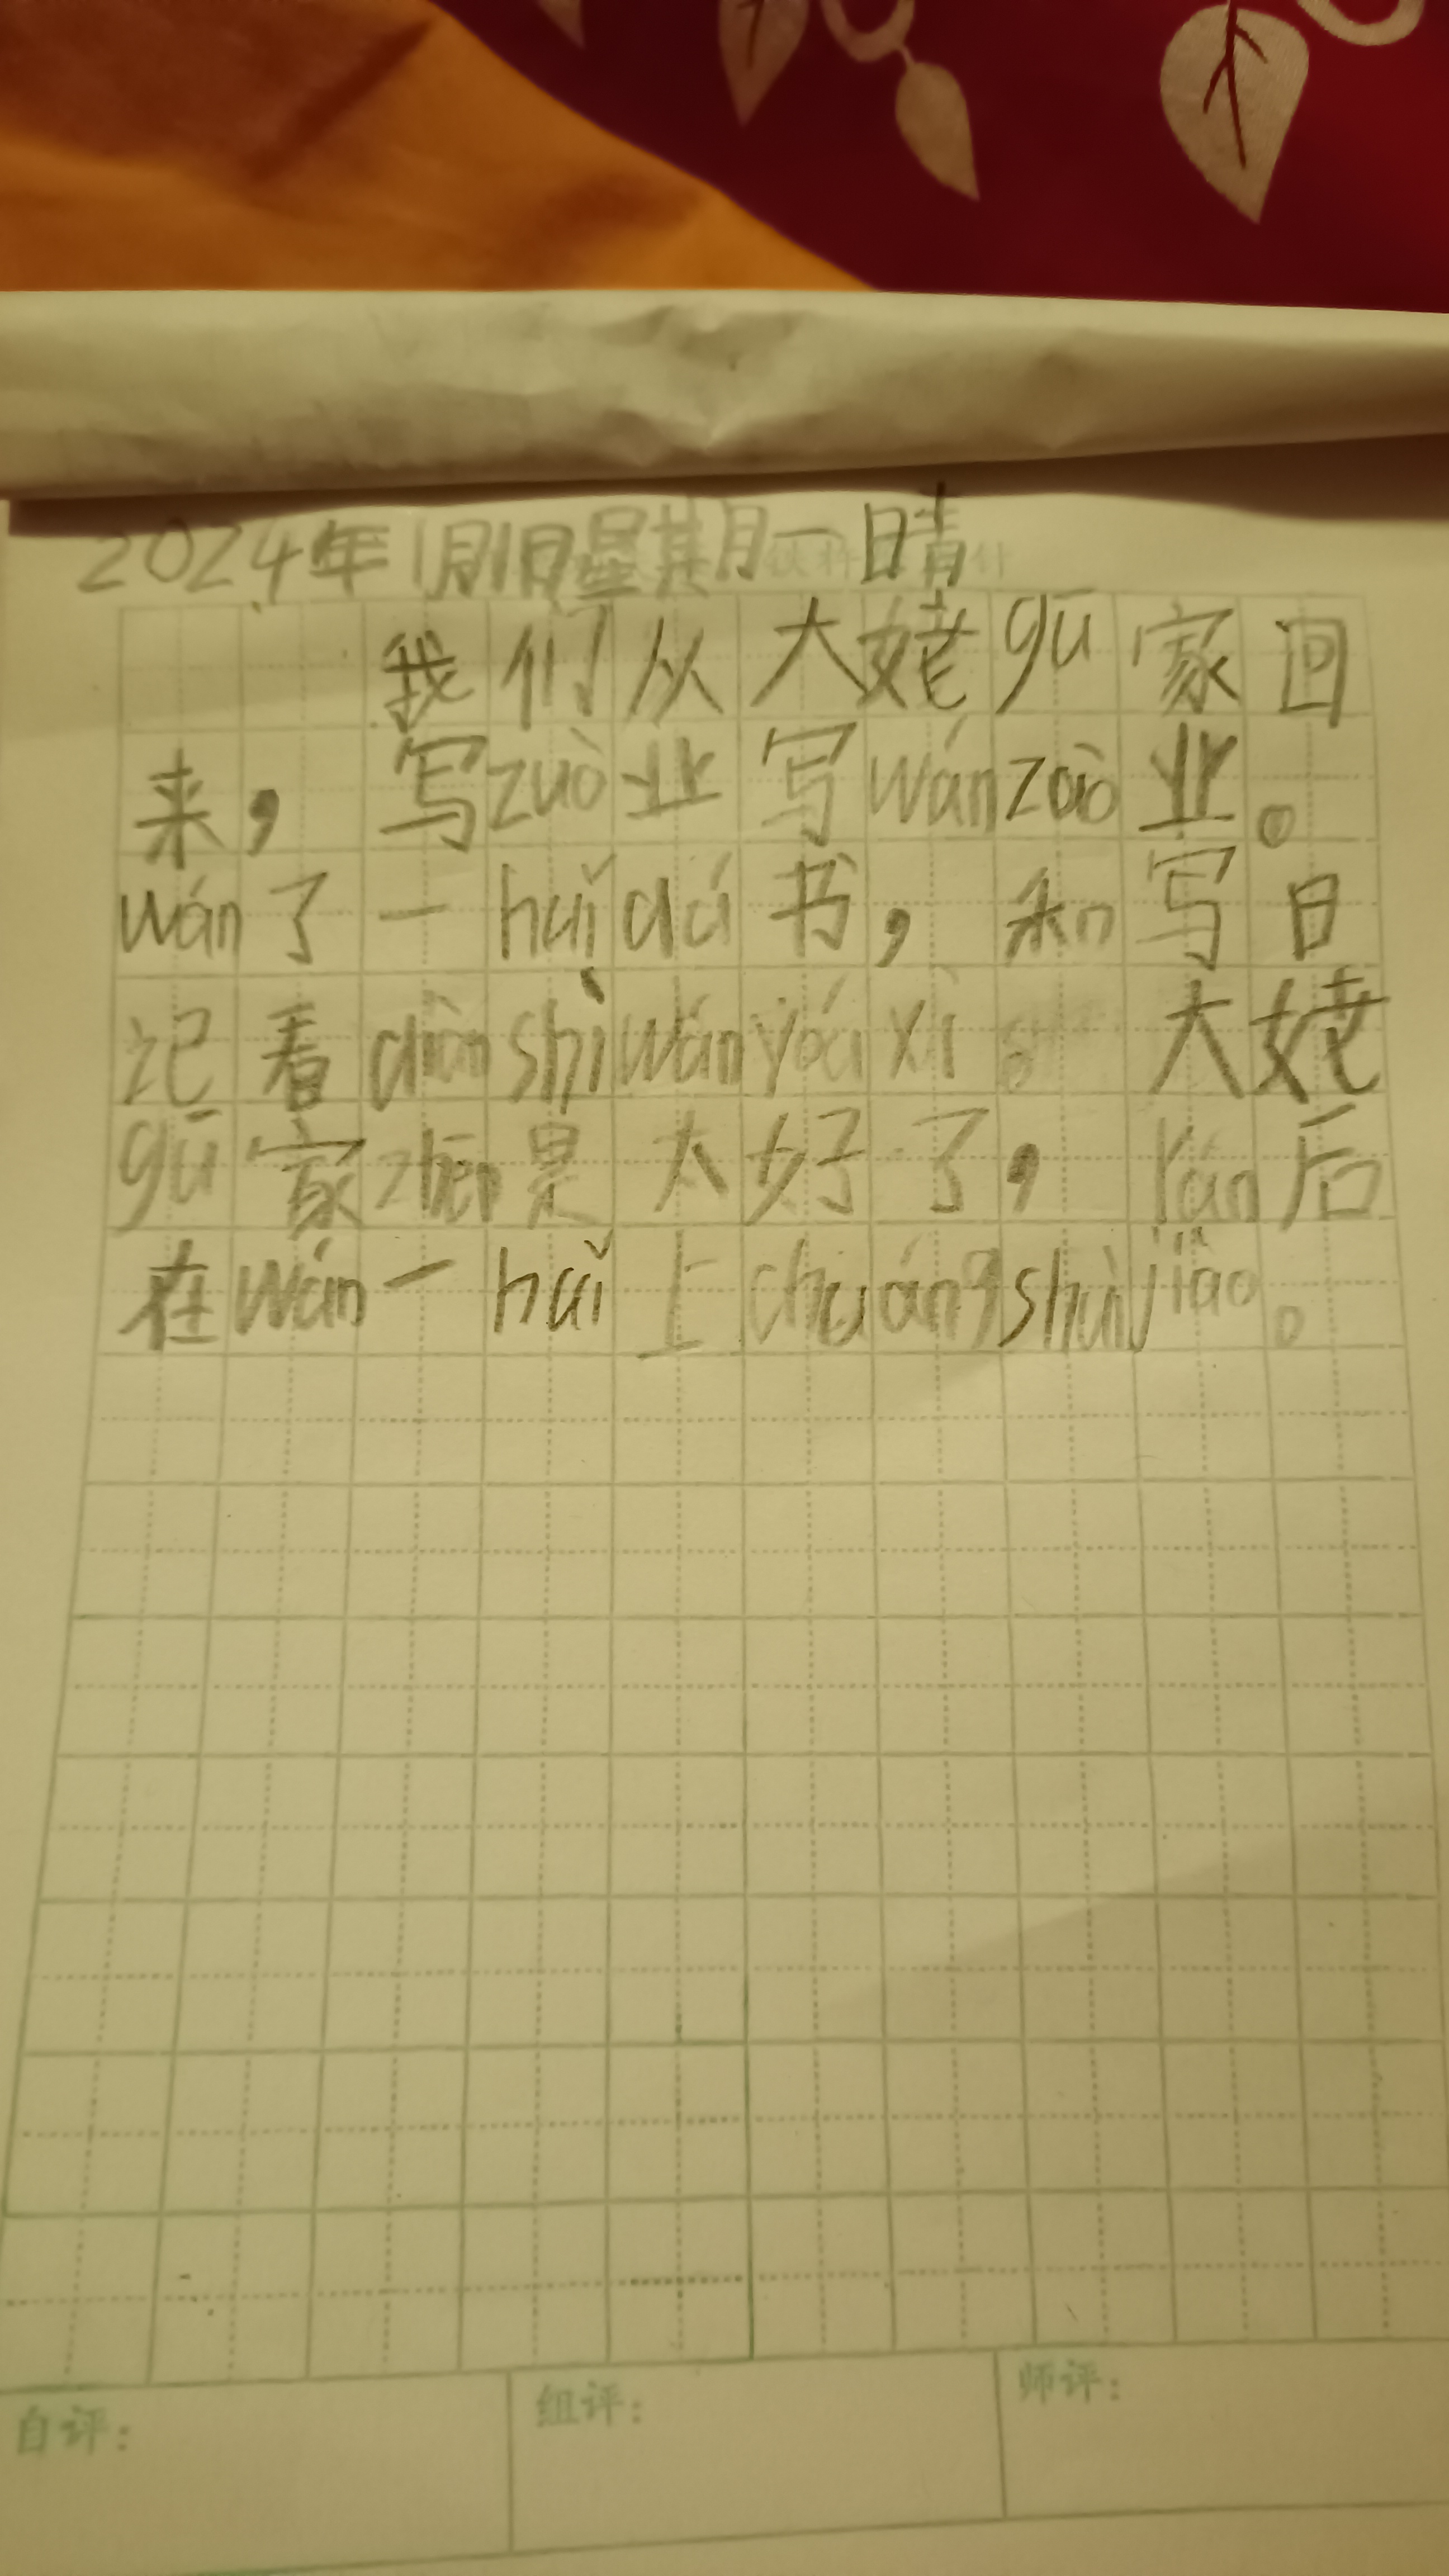 2024年1月1日星期一 晴
我们从大姥gū家回
来，写zuò业写wánzuò业。
wán了一huǐdú书，和写日
记看diànshìwányóuxì 大姥
gū家zhēn是太好了，rán后
在wán一huǐ上chuángshuìjiào。
自评： 组评： 师评：